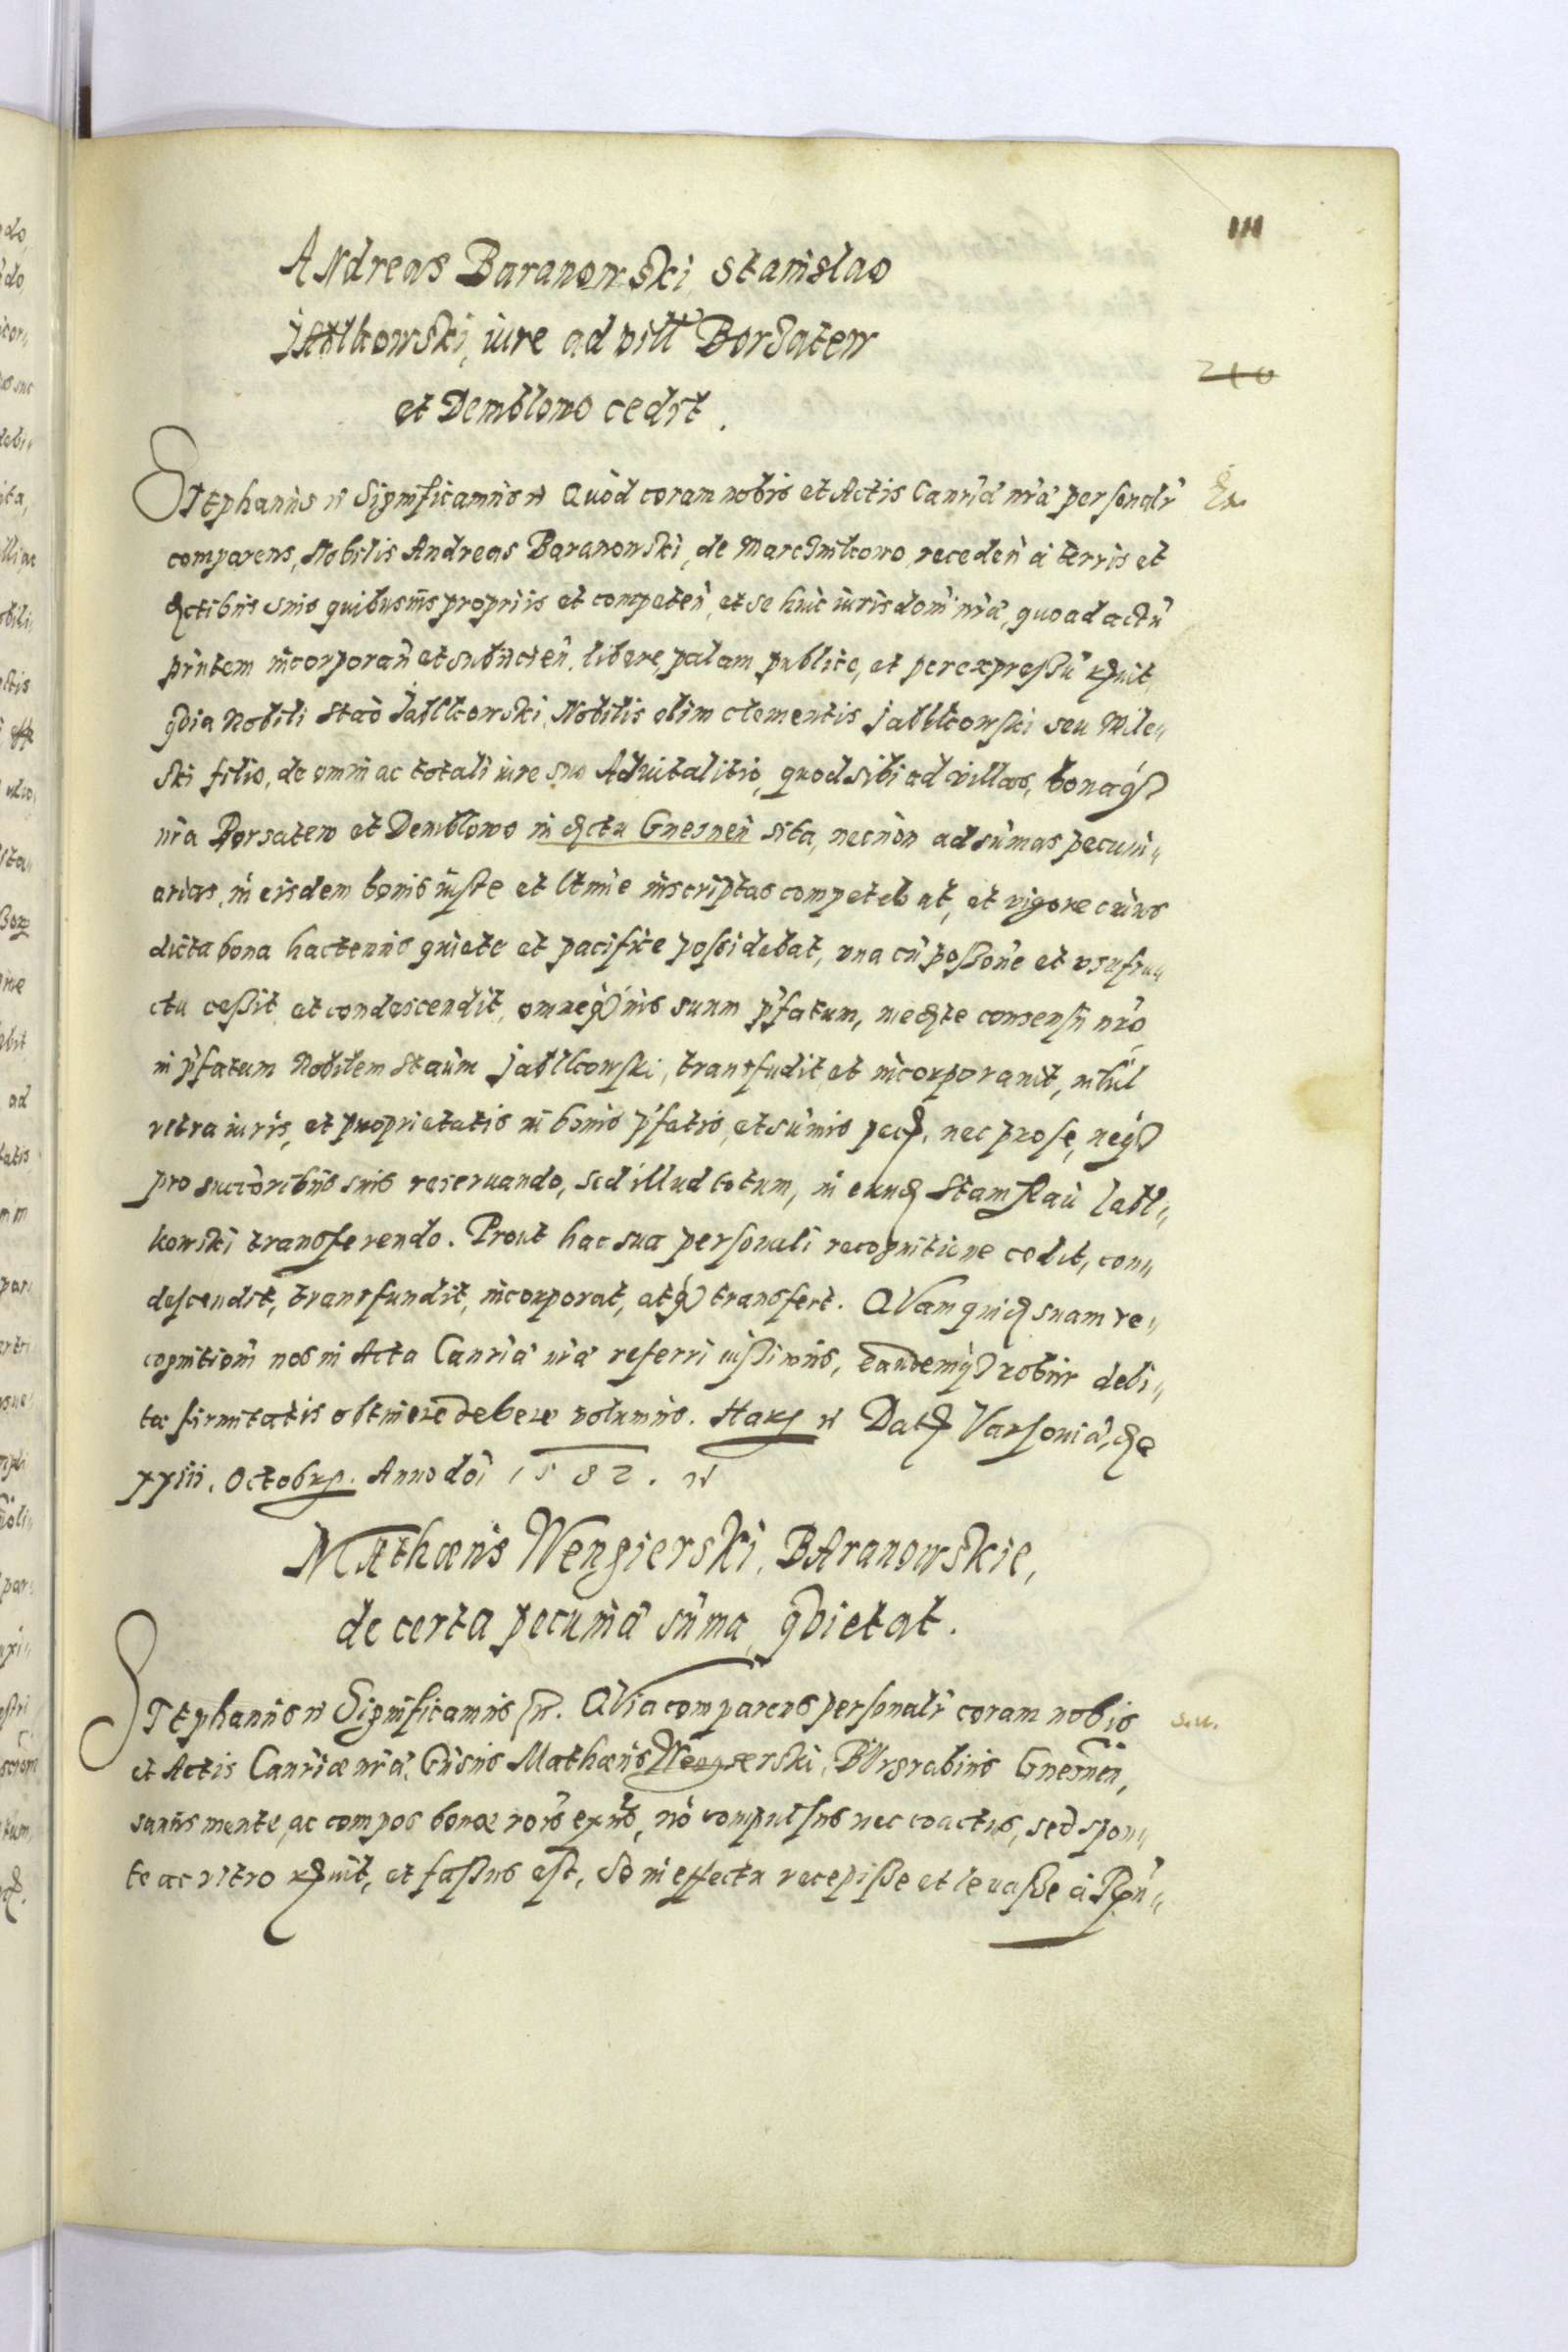 111
ANdreas Baranowski Stanislao
Jablkowski, iure ad vill Borsatew
et Demblowo cedit.
210
STEphanus Significamus Quod coram nobis et Actis Canria nra personalr
comparens, Nobilis Andreas Baranowski, de Marcinkowo receden a terris et
dctibus suis quibusuis propriis et competen, et se huic iurisdom nra, quo ad actu
pntem incorporan et subiicien. libere, palam publice, et per expressu rcuit,
qvia Nobili Stao Jablkowski, Nobilis olim clementis Jablkowski seu Mile„
ski filio, de omni ac totali iure suo Aduitalitio, quod sibi ad villas, bonaq3
nra Borsatew et Demblowo in dctu Gnesnen sita, necnon ad sumas pecuni„
arias, in eisdem bonis iuste et ltme inscriptas competebat, et vigore cuius
dicta bona hactenus quiete et pacifice possidebat, vna cu possone et vsufru„
ctu cessit et condescendit, omneq3 ius suum pfatum, medte consensu nro
in pfatum Nobilem Staum Jablkowski, transfudit et incorporauit, nihil
vltra iuris, et proprietatis in bonis pfatis, et sumis pecd, nec pro se, neq3
pro succoribus suis reseruando, sed illud totum, in eund Stanislau Jabl„
kowski transferendo. Prout hac sua personali recognitione cedit, con„
descendit, transfundit, incorporat, atq3 transfert. QVam quid suam re„
cognitiom nos in Acta Canria nra referri iussimus, eandemq3 robur debi„
tæ firmitatis obtinere debere volumus. Hars Dats Varsouia, de
xxiii. Octobrs. Anno doi 1582.
MAthæus Wengierski, BAranowskie,
de certa pecunia suma, qvietat.
STEphanus Significamus. QVia comparens personalr coram nobis
s.u.
et Actis Canriæ nra, Gnsus Mathæus Wengierski, BVrgrabius Gnesnen,
sanus mente, ac compos bonæ rois exns, no compulsus nec coactus, sed spon„
te ac vltro rcuit, et fassus est, Se in effectu recepisse et leuasse a Rn„